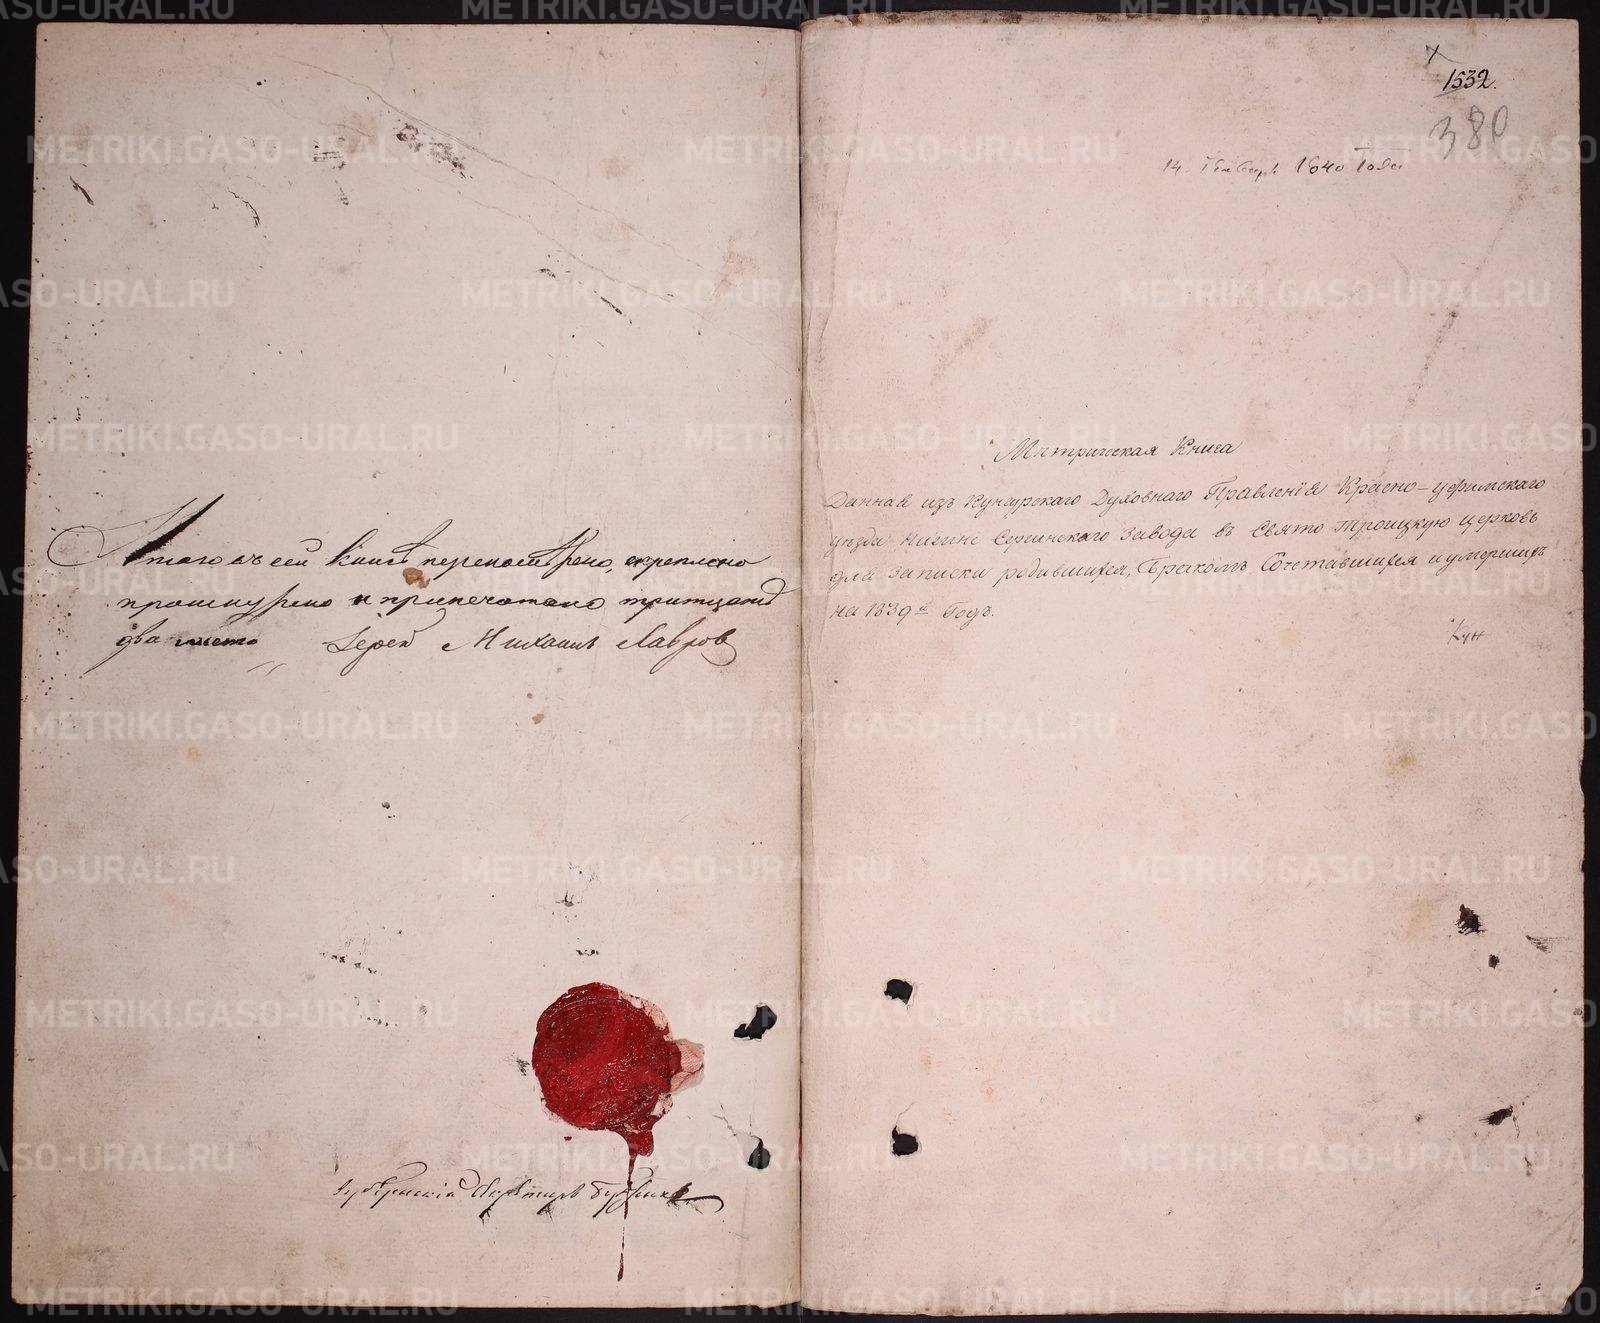 Итого въ сей Книгѣ перенострено, скреплено
прошнурено и припечатано тритцать
два листа Іерей Михаилъ Лавровъ
Губернскій Секретарь
1532.
380
14. Генваря 1840 Года
Метрическая Книга
Данная изъ Кунгурскаго Духовнаго Правленія Красно-уфимскаго
уѣзда Нижне Сергинскаго Завода въ Свято Троицкую церковь
для записки родившихся, Бракомъ Сочетавшихся и умершихъ
на 1839й Годъ.
Кун
METRIKI.GASO-URAL.RU